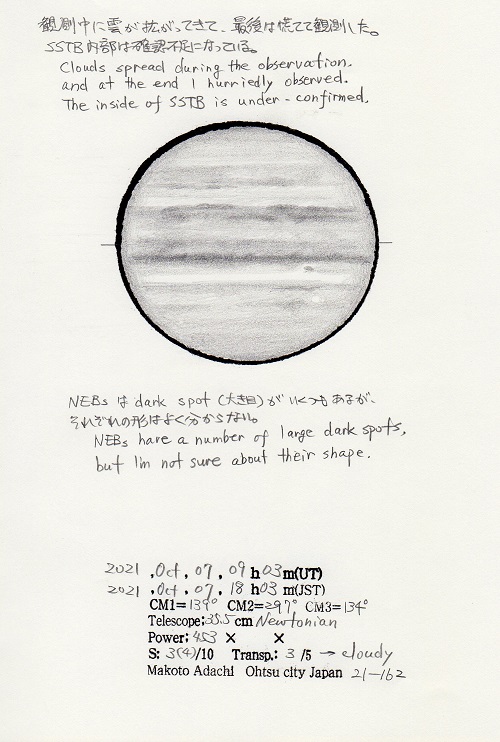 観測中に雲が拡がってきて、最後は慌てて観測した。
SSTB内部は確認不足になっている。
Clouds spread during the observation.
and at the end I hurriedly observed.
The inside of SSTB is under-confirmed.
NEBs は dark spot (大き目) がいくつもあるが、
それぞれの形はよく分からない。
NEBs have a number of large dark spots,
but I'm not sure about their shape.
2021 , Oct , 07 , 09 h 03 m(UT)
2021 , Oct , 07 , 18 h 03 m(JST)
CM1= 139° CM2= 297° CM3= 134°
Telescope: 35.5 cm Newtonian
Power: 453 × ×
S: 3(4)/10 Transp.: 3 /5 → cloudy
Makoto Adachi Ohtsu city Japan 21-162